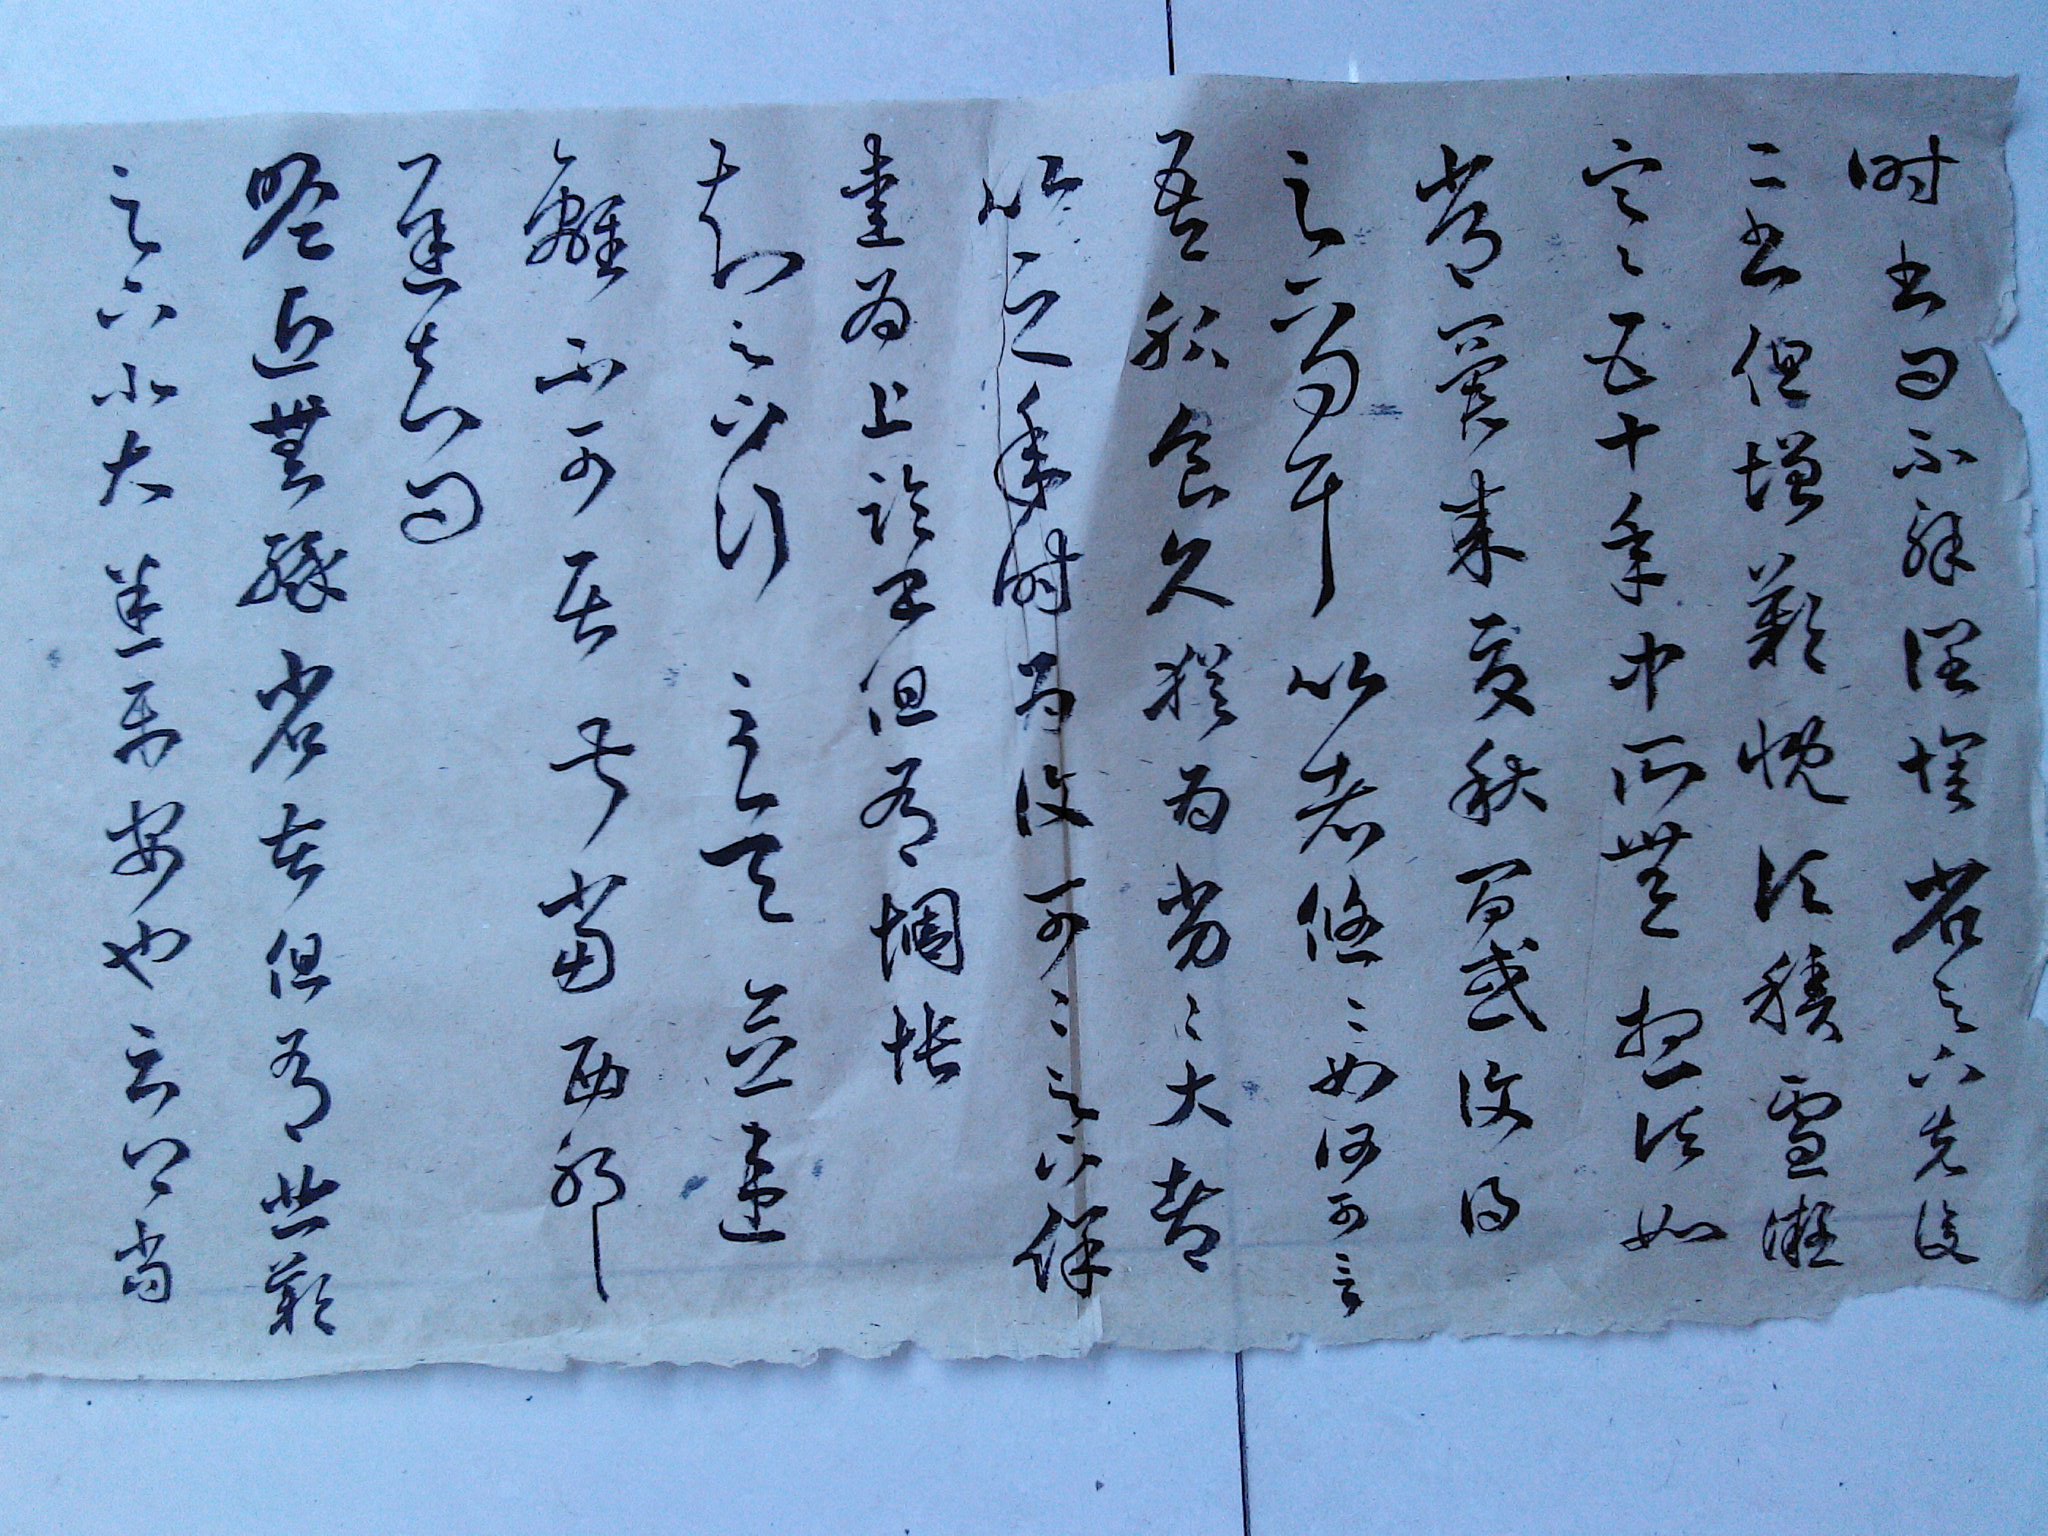 時書問不解闊懷省足下先後
二書但增歎慨頃積雪凝
寒五十年中所無想頃如
常冀來夏秋間或復得
足下問耳比者悠悠如何可言
吾服食久猶為劣劣大都
比之年時為復可可足下保
愛為上臨書但有惆悵
知足下行至吳念違
離不可居叔當西耶
遲知問
瞻近無緣省苦但有悲歎
足下小大悉平安也云卿當